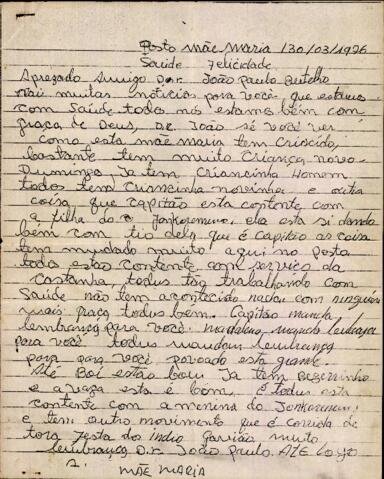 Posto Mãe Maria 30/03/1976
Saúde Felicidade
Aprezado Amigo Dor. João Paulo Butelho
vai muitas noticias para você que estamos
com Saúde todos nós estamos bem com
graça de Deus, Dr. João sé você ver
como esta mãe maria tem criscido,
bastante tem muito criança novo.
Dumingo Ja tem criancinha homem
todos tem criancinha novinha. e outra
coisa que capitão esta contente com
a filha do Jonkoremum, ela esta si dando
bem com tio dela que é capitão as coisa
tem mudado muito aqui no posto
todo estão contente com serviço da
castanha, todus tão trabalhando com
Saúde não tem acontecido nada com ninguém
graça todus bem. Capitão manda
lembrança para você. madalena, manda lembrança
para você todus mandam lembrança
para para você povoado esta grande.
Até Boi estão bom Ja tem Bezerrinho
e a vaza esta é bom. É todus esta
contente com a menina do Jonkoremum,
e tem outro movimento que é corrida de
tora festa do índio Gavião muito
lembrança Dr. João Paulo. ATÉ Logo
MÃE MARIA